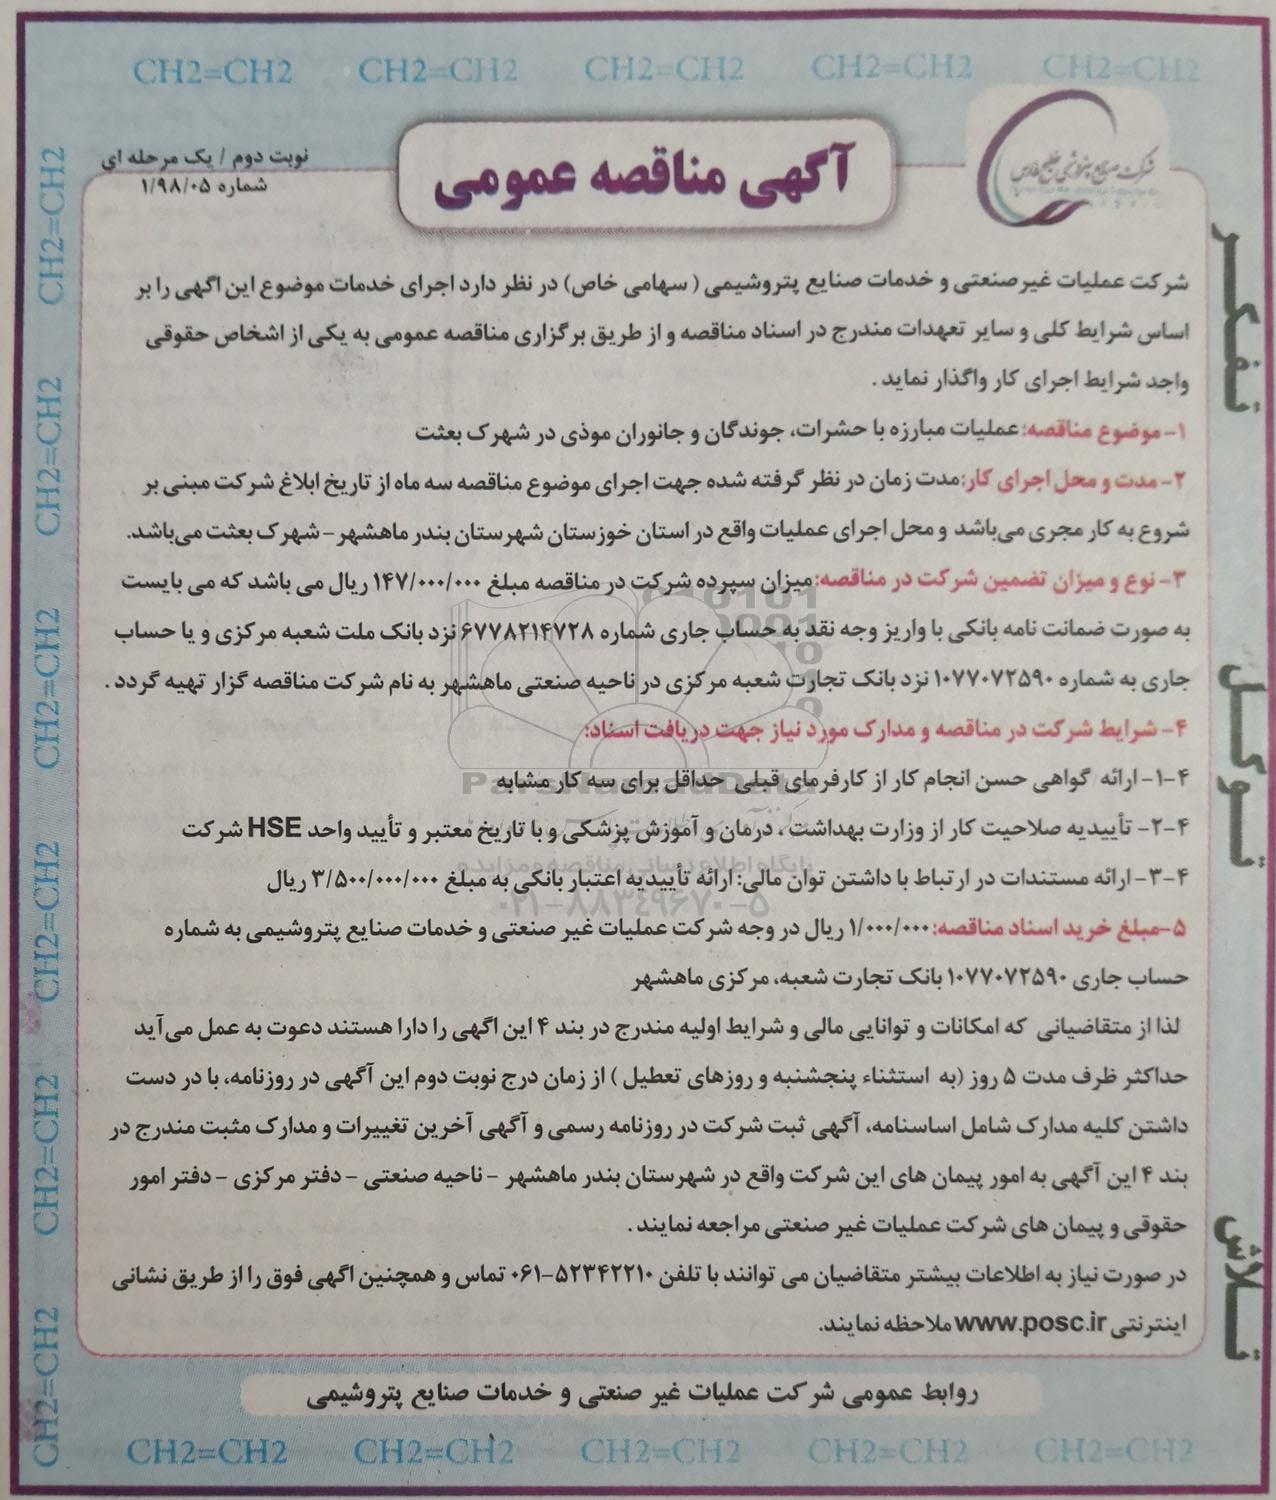 CH2=CH2 CH2=CH2 CH2=CH2 CH2=CH2 CH2=CH2
شرکت صنایع پتروشیمی خلیج فارس
آگهی مناقصه عمومی
نوبت دوم / یک مرحله ای
شماره ۱/۹۸/۰۵
شرکت عملیات غیرصنعتی و خدمات صنایع پتروشیمی ( سهامی خاص) در نظر دارد اجرای خدمات موضوع این اگهی را بر
اساس شرایط کلی و سایر تعهدات مندرج در اسناد مناقصه و از طریق برگزاری مناقصه عمومی به یکی از اشخاص حقوقی
واجد شرایط اجرای کار واگذار نماید .
۱- موضوع مناقصه: عملیات مبارزه با حشرات، جوندگان و جانوران موذی در شهرک بعثت
۲- مدت و محل اجرای کار: مدت زمان در نظر گرفته شده جهت اجرای موضوع مناقصه سه ماه از تاریخ ابلاغ شرکت مبنی بر
شروع به کار مجری می‌باشد و محل اجرای عملیات واقع در استان خوزستان شهرستان بندر ماهشهر - شهرک بعثت می‌باشد.
۳- نوع و میزان تضمین شرکت در مناقصه: میزان سپرده شرکت در مناقصه مبلغ ۱۴۷/۰۰۰/۰۰۰ ریال می باشد که می بایست
به صورت ضمانت نامه بانکی یا واریز وجه نقد به حساب جاری شماره ۶۷۷۸۲۱۴۷۲۸ نزد بانک ملت شعبه مرکزی و یا حساب
جاری به شماره ۱۰۷۷۰۷۲۵۹۰ نزد بانک تجارت شعبه مرکزی در ناحیه صنعتی ماهشهر به نام شرکت مناقصه گزار تهیه گردد .
۴- شرایط شرکت در مناقصه و مدارک مورد نیاز جهت دریافت اسناد:
۴-۱- ارائه گواهی حسن انجام کار از کارفرمای قبلی حداقل برای سه کار مشابه
۴-۲- تأییدیه صلاحیت کار از وزارت بهداشت ، درمان و آموزش پزشکی و با تاریخ معتبر و تأیید واحد HSE شرکت
۴-۳- ارائه مستندات در ارتباط با داشتن توان مالی: ارائه تأییدیه اعتبار بانکی به مبلغ ۳/۵۰۰/۰۰۰/۰۰۰ ریال
۵-مبلغ خرید اسناد مناقصه: ۱/۰۰۰/۰۰۰ ریال در وجه شرکت عملیات غیر صنعتی و خدمات صنایع پتروشیمی به شماره
حساب جاری ۱۰۷۷۰۷۲۵۹۰ بانک تجارت شعبه، مرکزی ماهشهر
لذا از متقاضیانی که امکانات و توانایی مالی و شرایط اولیه مندرج در بند ۴ این اگهی را دارا هستند دعوت به عمل می‌آید
حداکثر ظرف مدت ۵ روز (به استثناء پنجشنبه و روزهای تعطیل ) از زمان درج نوبت دوم این آگهی در روزنامه، با در دست
داشتن کلیه مدارک شامل اساسنامه، آگهی ثبت شرکت در روزنامه رسمی و آگهی آخرین تغییرات و مدارک مثبت مندرج در
بند ۴ این آگهی به امور پیمان های این شرکت واقع در شهرستان بندر ماهشهر - ناحیه صنعتی - دفتر مرکزی - دفتر امور
حقوقی و پیمان های شرکت عملیات غیر صنعتی مراجعه نمایند .
در صورت نیاز به اطلاعات بیشتر متقاضیان می توانند با تلفن ۵۲۳۴۲۲۱۰-۰۶۱ تماس و همچنین اگهی فوق را از طریق نشانی
اینترنتی www.posc.ir ملاحظه نمایند.
روابط عمومی شرکت عملیات غیر صنعتی و خدمات صنایع پتروشیمی
CH2=CH2 CH2=CH2 CH2=CH2 CH2=CH2 CH2=CH2
تفکر
توکل
تلاش
CH2=CH2 CH2=CH2 CH2=CH2 CH2=CH2 CH2=CH2 CH2=CH2
ParsNamadData
پایگاه اطلاع رسانی مناقصه و مزایده
۰۲۱-۸۸۳۴۹۶۷۰-۵